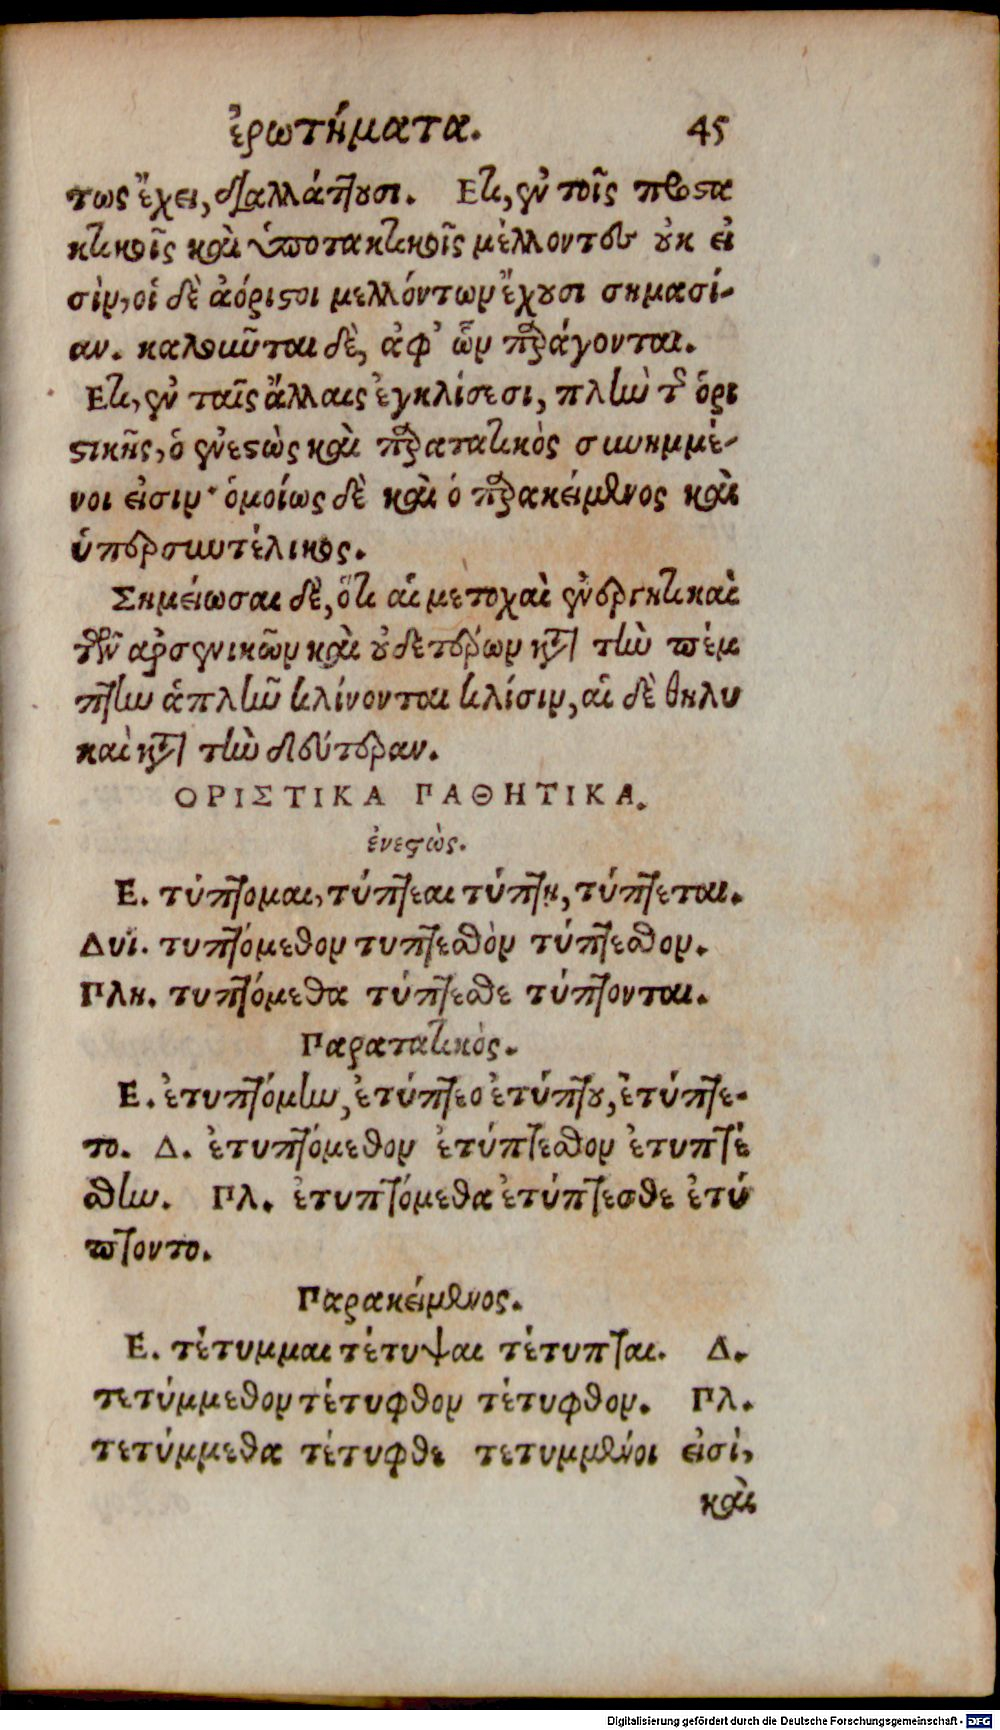 ἐρωτήματα. 45
τως ἔχει, διαλλάττουσι. Ἔτι, ἐν τοῖς προστα
κτικοῖς καὶ ὑποτακτικοῖς μέλλοντες οὐκ εἰ
σὶν, οἱ δὲ ἀόριστοι μελλόντων ἔχουσι σημασί-
αν. καλοῦνται δὲ, ἀφ' ὧν παράγονται.
Ἔτι, ἐν ταῖς ἄλλαις ἐγκλίσεσι, πλὴν τῆς ὁρι
στικῆς, ὁ ἐνεστὼς καὶ παρατατικὸς συνημμέ-
νοι εἰσιν· ὁμοίως δὲ καὶ ὁ παρακείμενος καὶ
ὑπερσυντέλικος.
Σημείωσαι δὲ, ὅτι αἱ μετοχαὶ ἐνεργητικαὶ
τῶν ἀρσενικῶν καὶ οὐδετέρων κατὰ τὴν πέμ
πτην ἁπλῆν κλίνονται κλίσιν, αἱ δὲ θηλυ
καὶ κατὰ τὴν δευτέραν.
ΟΡΙΣΤΙΚΑ ΠΑΘΗΤΙΚΑ.
ἐνεστὼς.
Ε. τύπτομαι, τύπτεαι τύπτῃ, τύπτεται.
Δυϊ. τυπτόμεθον τυπτεσθὸν τύπτεσθον.
Πλη. τυπτόμεθα τύπτεσθε τύπτονται.
Παρατατικὸς.
Ε. ἐτυπτόμην, ἐτύπτεο ἐτύπτου, ἐτύπτε-
το. Δ. ἐτυπτόμεθον ἐτύπτεσθον ἐτυπτέ
σθην. Πλ. ἐτυπτόμεθα ἐτύπτεσθε ἐτύ
πτοντο.
Παρακείμενος.
Ε. τέτυμμαι τέτυψαι τέτυπται. Δ.
τετύμμεθον τέτυφθον τέτυφθον. Πλ.
τετύμμεθα τέτυφθε τετυμμένοι εἰσί,
καὶ
Digitalisierung gefördert durch die Deutsche Forschungsgemeinschaft - DFG